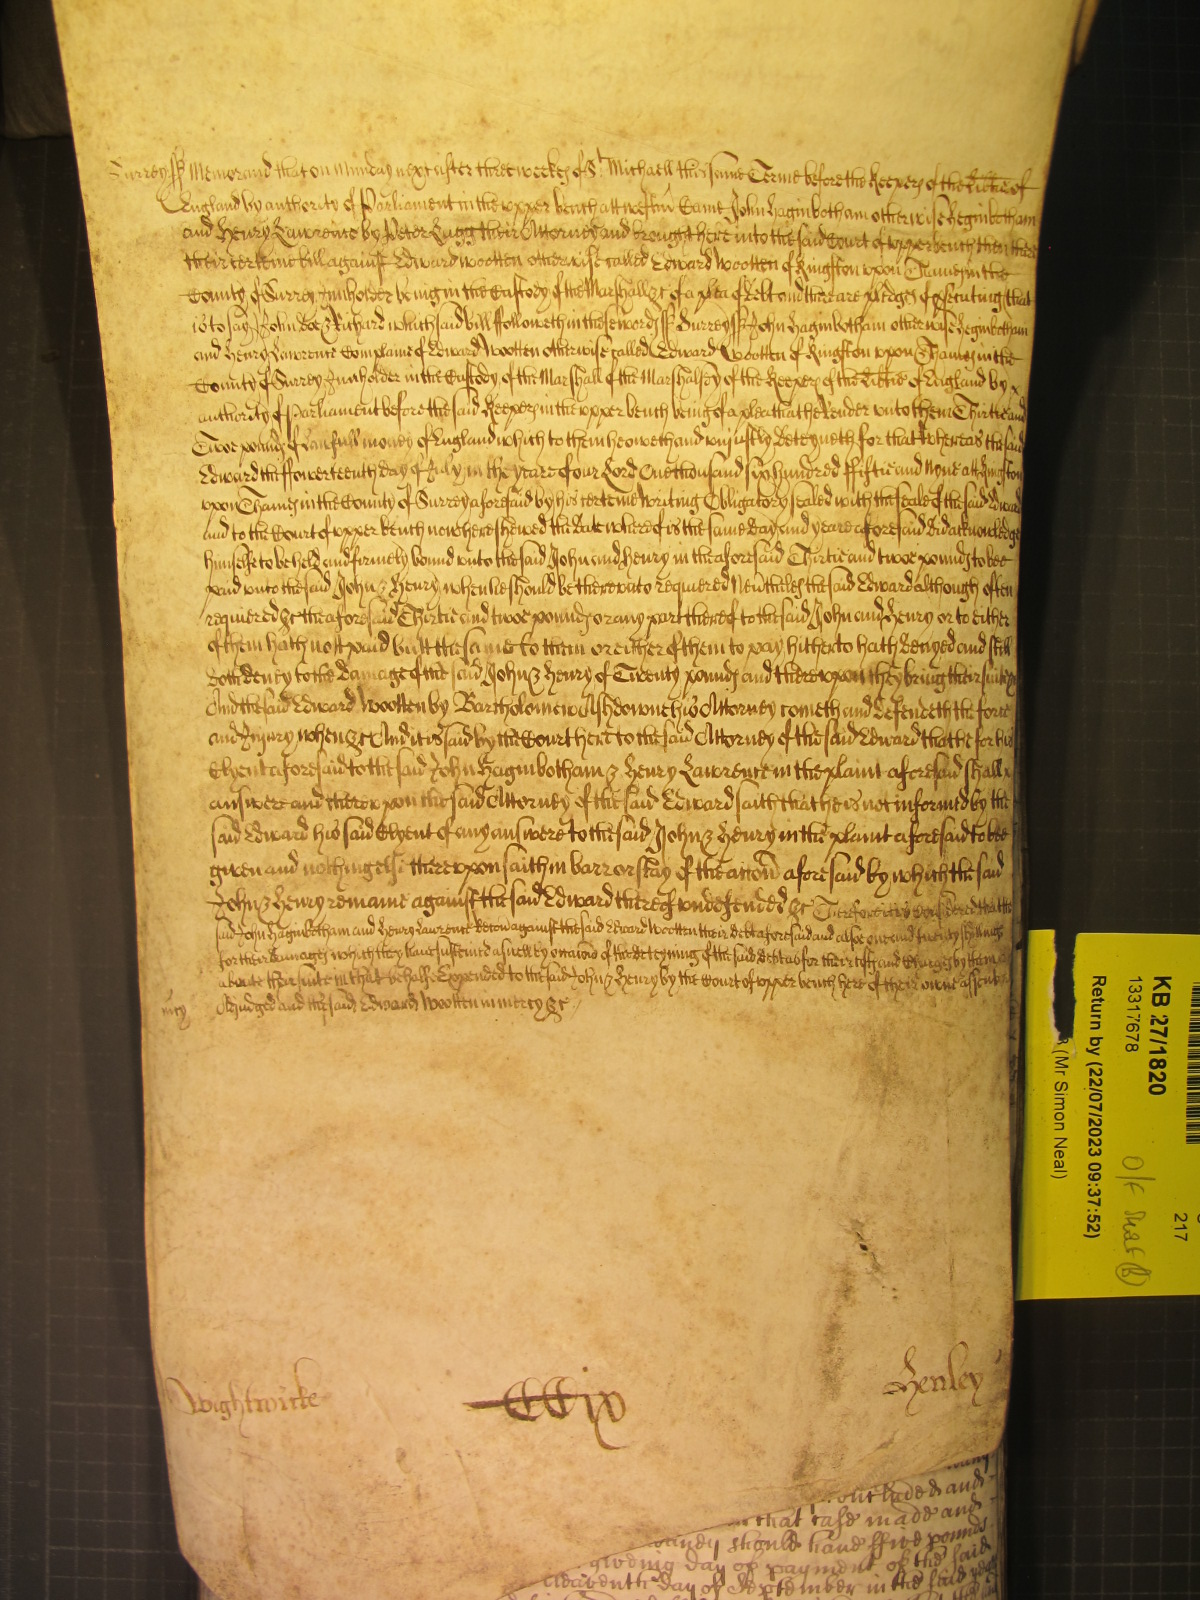 Surrey ss Memorand that on Munday next after three weekes of St Michaell this same Terme before the Keepers of the Litie of
England by authority of Parliament in the upper bench att Westm Came John Haginbotham otherwise Heginbotham
and Henry Lawrence by Peter Lugg their Attorney and brought here into the said Court of upper bench then there
their certeine bill against Edward Wootten otherwise called Edward Wootten of Kingston upon Thames in the
County of Surrey Innholder being in the Custody of the Marshall &c of a plea of debt and there are pledges of psecuting that
is to say John doe & Richard which said bill followeth in these words ss Surrey ss John Haginbotham otherwise Heginbotham
and Henry Lawrence Complaine of Edward Wootten otherwise called Edward Wootten of Kingston upon Thames in the
County of Surrey Innholder in the Custody of the Marshall of the Marshalsey of the Keepers of the Litie of England by
authority of Parliament before the said Keepers in the upper bench being of a plea that he Render unto them Thirtie and
Twoe pounds of lawfull money of England which to them he oweth and uniustly deteyneth for that Whereas the said
Edward the ffowerteenth day of July in the yeare of our Lord One thousand six hundred ffiftie and None att Kingston
upon Thames in the County of Surrey aforesaid by his certeine Writing Obligatory sealed with the seale of the said Edward
and to the Court of upper bench now here shewed the date whereof is the same day and yeare aforesaid did acknowledge
himselfe to be held and firmely bound unto the said John and Henry in the aforesaid Thirtie and twoe pounds to bee
paid unto the said John & Henry when he should be thereunto requiered Neverthelesse the said Edward although often
requiered &c the aforesaid Thirtie and twoe pounds or any part thereof to the said John and Henry or to either
of them hath nott paid butt the same to them or either of them to pay hitherto hath denyed and still
doth deney to the damage of the said John & Henry of Twenty pounds and thereupon they bring their suite
And the said Edward Wootten by Bartholomew Ashdowne his Attorney cometh and defendeth the force
and Iniury when &c And it is said by the Court here to the said Attorney of the said Edward that he for his
Clyent aforesaid to the said John Haginbotham & Henry Lawrence in the plaint aforesaid shall
answere and thereupon the said Attorney of the said Edward saith that he is not informed by the
said Edward his said Clyent of any answere to the said John & Henry in the plaint aforesaid to bee
given and nothing else thereupon saith in barr or stay of the accon aforesaid by which the said
John & Henry remaine against the said Edward thereof undefended &c Therefore it is considered that the
said John Haginbotham and Henry Lawrence Recov against the said Edward Wootten their debt aforesaid and alsoe one and twenty shillings
for their damages which they have susteined aswell by occasion of the deteyning of the said debt as for their costs and Charges by them
about their suite in that behalfe Expended to the said John & Henry by the Court of upper bench here of their owne assent
Adiudged and the said Edward Wootten in mercy &c
mcy
Wightwicke
CCix
Henley
KB 27/1820
13317678
Return by (22/07/2023 09:37:52)
(Mr Simon Neal)
217
that case made and
should have ffive pounds
day of payment of the said
day of September in the said